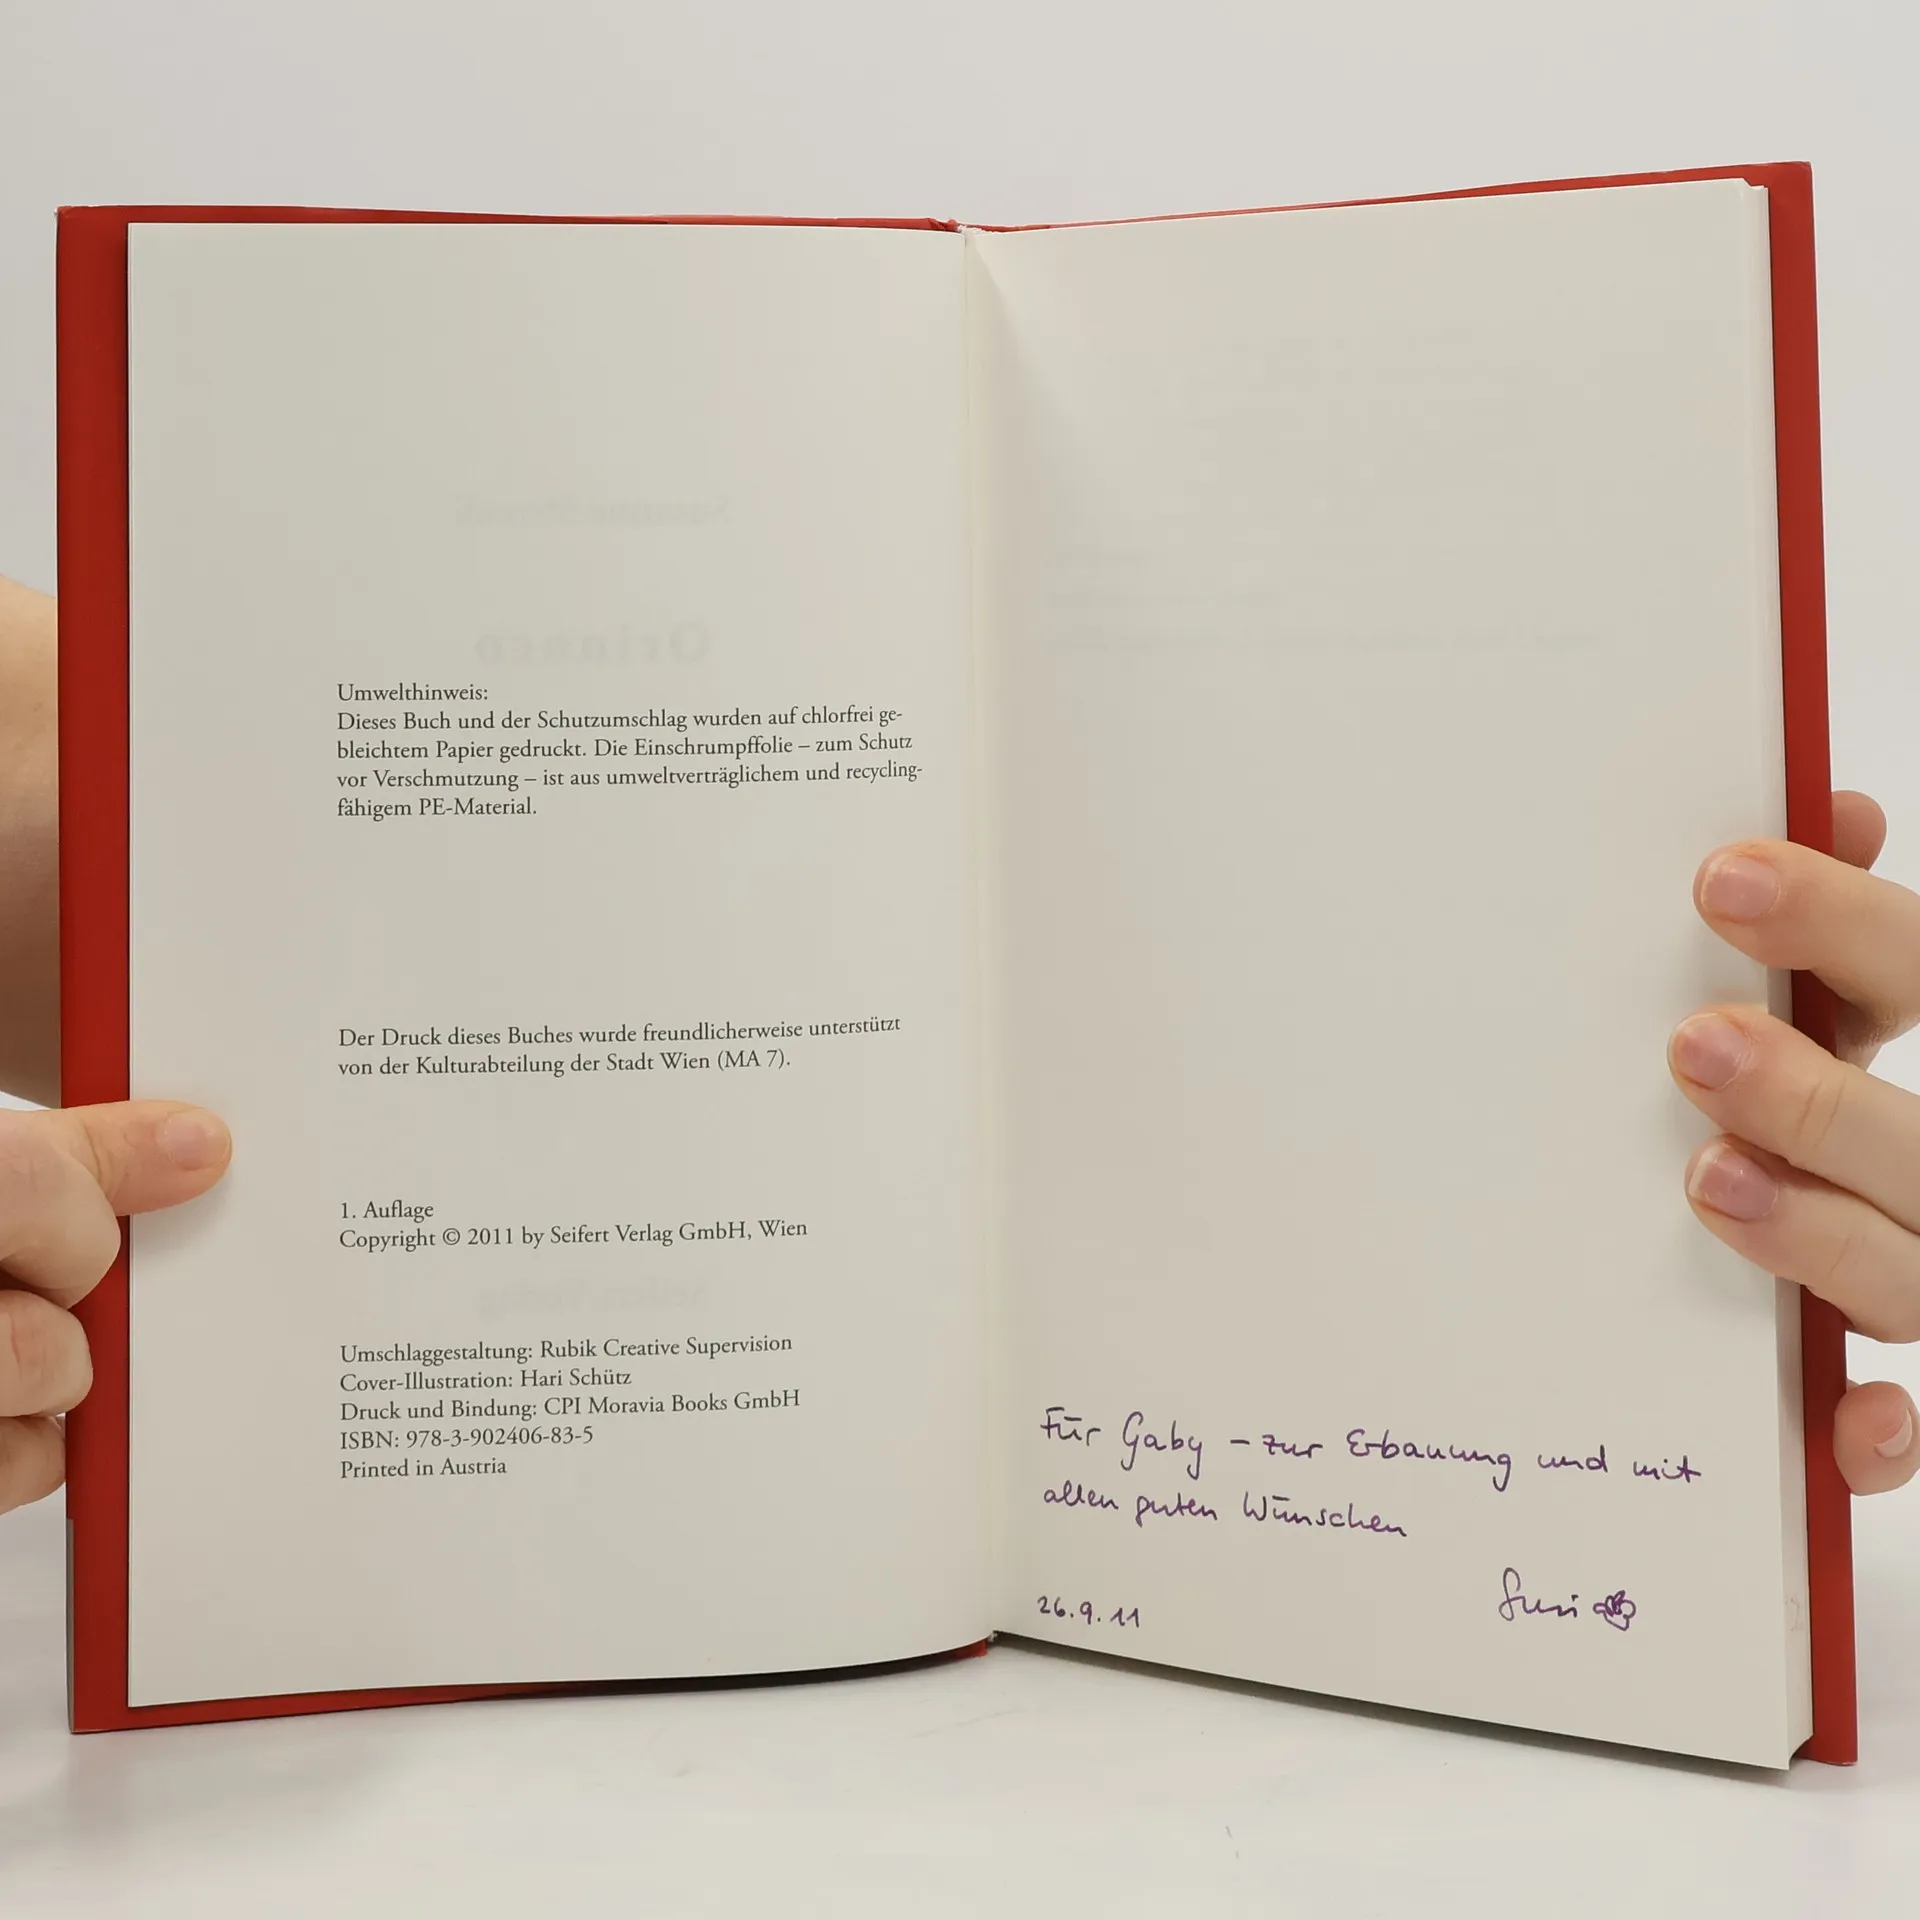 Umwelthinweis:
Dieses Buch und der Schutzumschlag wurden auf chlorfrei ge-
bleichtem Papier gedruckt. Die Einschrumpffolie – zum Schutz
vor Verschmutzung – ist aus umweltverträglichem und recycling-
fähigem PE-Material.
Der Druck dieses Buches wurde freundlicherweise unterstützt
von der Kulturabteilung der Stadt Wien (MA 7).
1. Auflage
Copyright © 2011 by Seifert Verlag GmbH, Wien
Umschlaggestaltung: Rubik Creative Supervision
Cover-Illustration: Hari Schütz
Druck und Bindung: CPI Moravia Books GmbH
ISBN: 978-3-902406-83-5
Printed in Austria
Für Gaby – zur Erbauung und mit
allen guten Wünschen
Susi
26.9.11